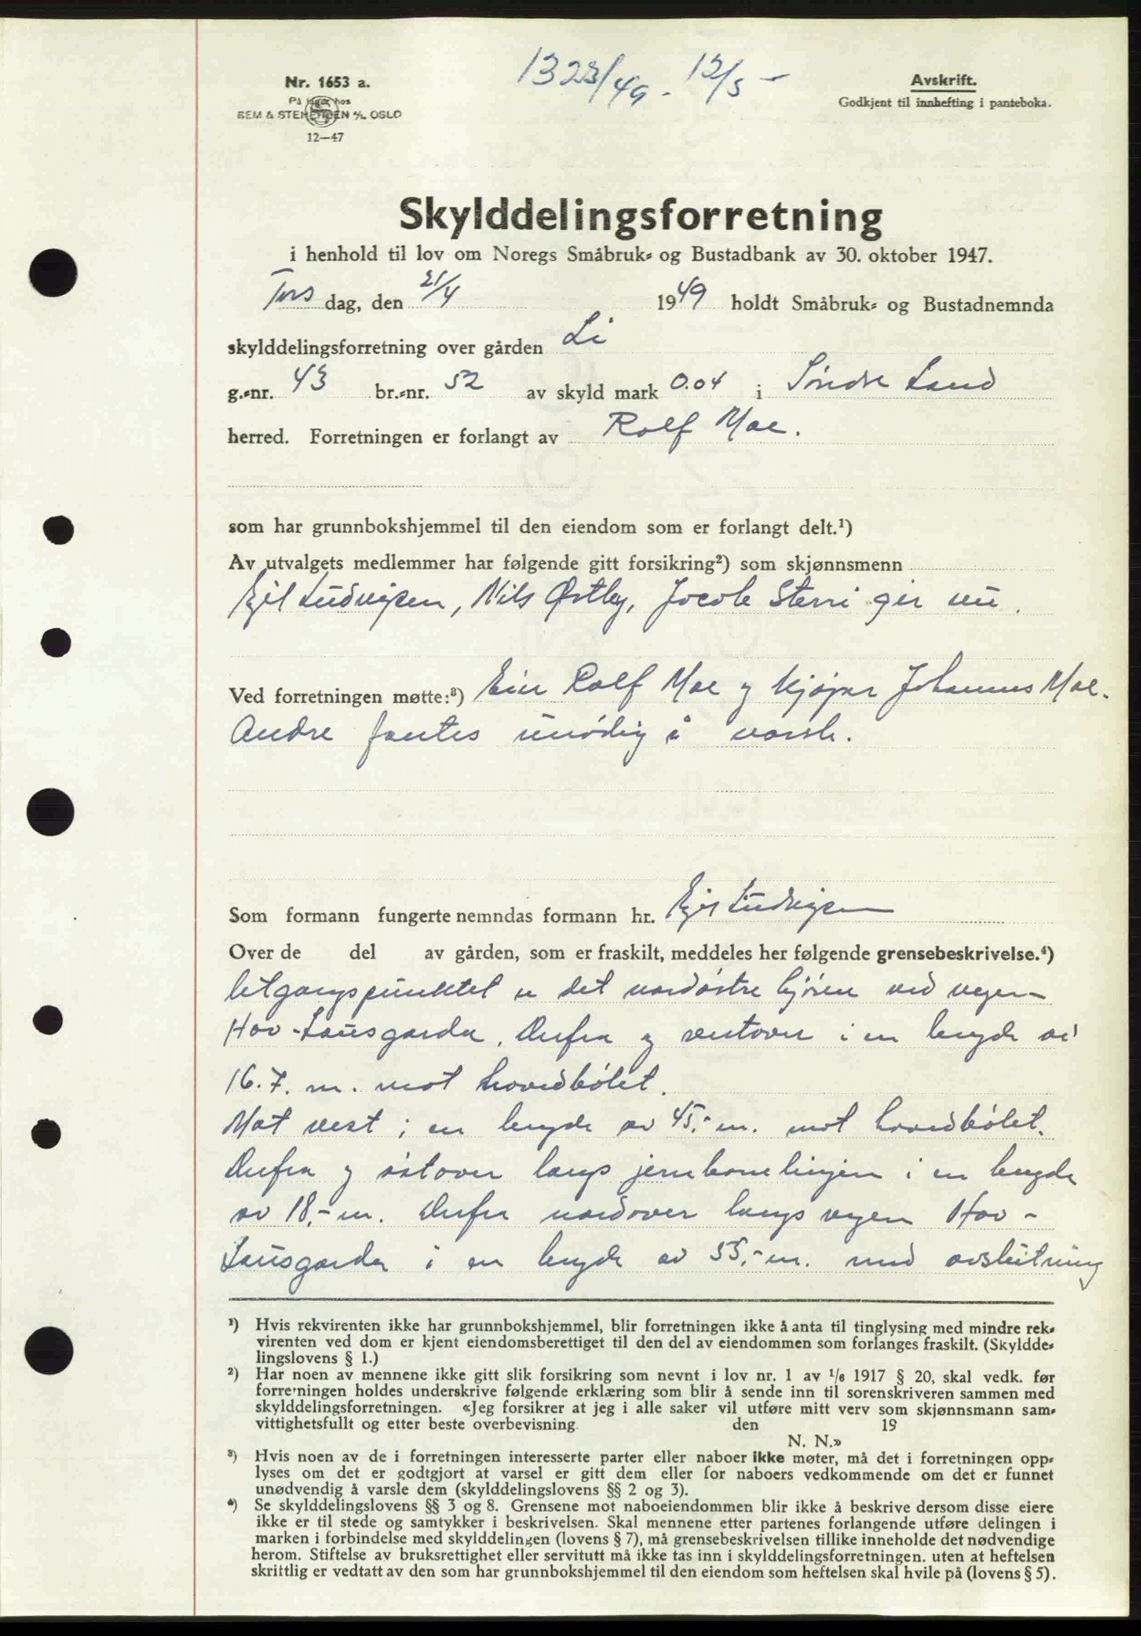 1323/49 - 12/5 -
Nr. 1653 a.
På lager hos
SEM & STENERSEN A/S OSLO
12—47
Avskrift.
Godkjent til innhefting i panteboka.
Skylddelingsforretning
i henhold til lov om Noregs Småbruk- og Bustadbank av 30. oktober 1947.
Tors dag, den 21/4 1949 holdt Småbruk- og Bustadnemnda
skylddelingsforretning over gården Li
g.-nr. 43 br.-nr. 52 av skyld mark 0.04 i Søndre Land
herred. Forretningen er forlangt av Rolf Moe.
som har grunnbokshjemmel til den eiendom som er forlangt delt.¹)
Av utvalgets medlemmer har følgende gitt forsikring²) som skjønnsmenn
Egil Ludvigsen, Nils Østby, Jocob Sterri gir nu.
Ved forretningen møtte:³) Eier Rolf Moe og kjøper Johannes Moe.
Andre fantes unødig å varsle.
Som formann fungerte nemndas formann hr. Egil Ludvigsen
Over de del av gården, som er fraskilt, meddeles her følgende grensebeskrivelse.⁴)
Utgangspunktet er det nordøstre hjøren ved vegen
Hov - Lausgarda. Derfra og vestover i en lengde av
16.7. m. mot hovedbølet.
Mot vest i en lengde av 45,- m. mot hovedbølet.
Derfra og østover langs jernbanelinjen i en lengde
av 18,- m. Derfra nordover langs vegen Hov -
Lausgarda i en lengde av 55,- m. med avslutning
¹) Hvis rekvirenten ikke har grunnbokshjemmel, blir forretningen ikke å anta til tinglysing med mindre rek-
virenten ved dom er kjent eiendomsberettiget til den del av eiendommen som forlanges fraskilt. (Skyldde-
lingslovens § 1.)
²) Har noen av mennene ikke gitt slik forsikring som nevnt i lov nr. 1 av 1/6 1917 § 20, skal vedk. før
forretningen holdes underskrive følgende erklæring som blir å sende inn til sorenskriveren sammen med
skylddelingsforretningen. «Jeg forsikrer at jeg i alle saker vil utføre mitt verv som skjønnsmann sam-
vittighetsfullt og etter beste overbevisning den 19
N. N.»
³) Hvis noen av de i forretningen interesserte parter eller naboer ikke møter, må det i forretningen opp-
lyses om det er godtgjort at varsel er gitt dem eller for naboers vedkommende om det er funnet
unødvendig å varsle dem (skylddelingslovens §§ 2 og 3).
⁴) Se skylddelingslovens §§ 3 og 8. Grensene mot naboeiendommen blir ikke å beskrive dersom disse eiere
ikke er til stede og samtykker i beskrivelsen. Skal mennene etter partenes forlangende utføre delingen i
marken i forbindelse med skylddelingen (lovens § 7), må grensebeskrivelsen tillike inneholde det nødvendige
herom. Stiftelse av bruksrettighet eller servitutt må ikke tas inn i skylddelingsforretningen. uten at heftelsen
skrittlig er vedtatt av den som har grunnbokshjemmel til den eiendom som heftelsen skal hvile på (lovens § 5).